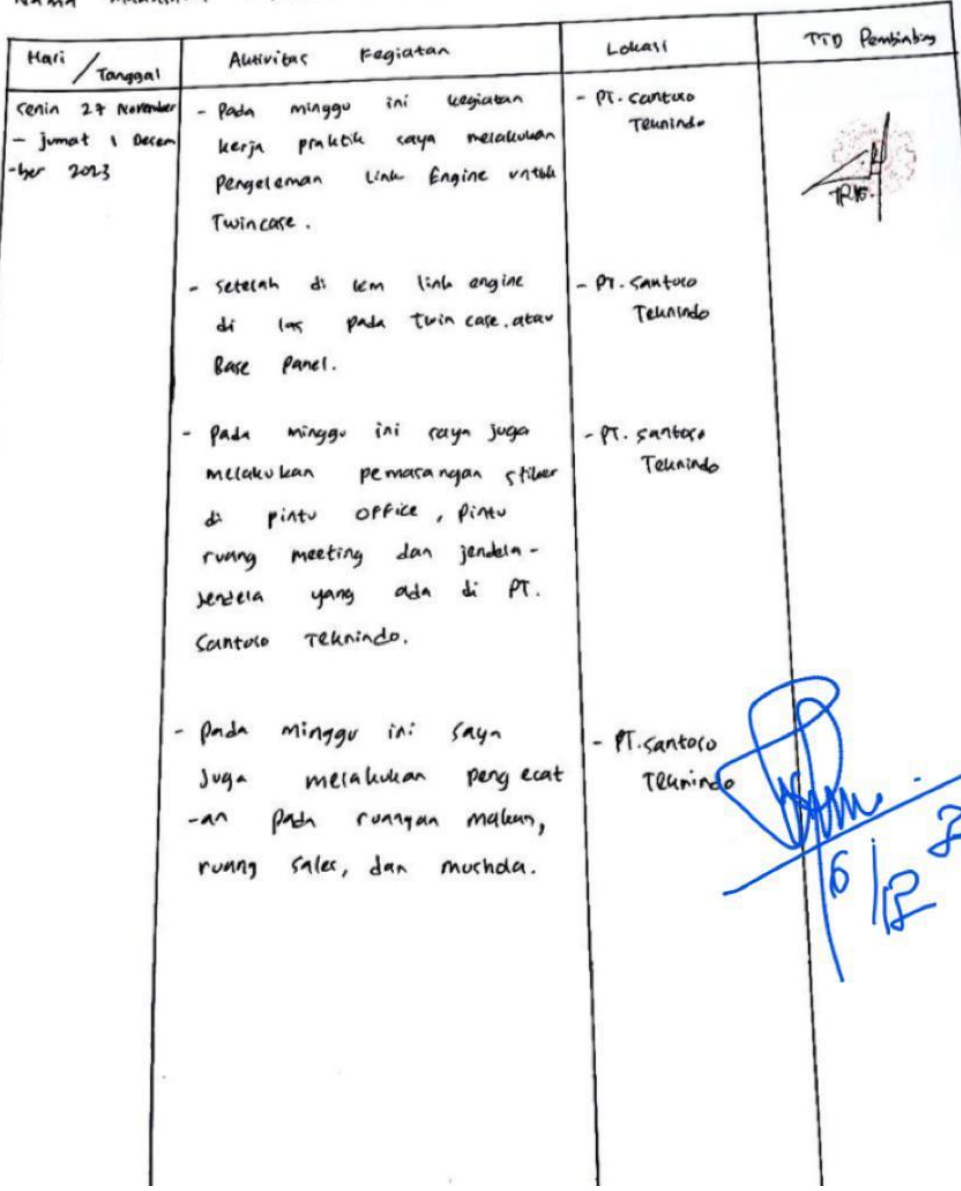 Hari / Tanggal
Aktivitas Kegiatan
Lokasi
TTD Pembimbing
Senin 27 November
- Jumat 1 Decem
-ber 2023
- Pada minggu ini kegiatan
kerja praktik saya melakukan
Pengeleman Link Engine untuk
Twincase.
- PT. Santoso
Teknindo
- Setelah di lem link engine
di las pada twin case. atau
Base Panel.
- PT. Santoso
Teknindo
- Pada minggu ini saya juga
melakukan pemasangan stiker
di pintu office, pintu
ruang meeting dan jendela-
jendela yang ada di PT.
Santoso Teknindo.
- PT. Santoso
Teknindo
- Pada minggu ini saya
Juga melakukan pengecat
-an pada ruangan makan,
ruang sales, dan mushola.
- PT. Santoso
Teknindo
6/12